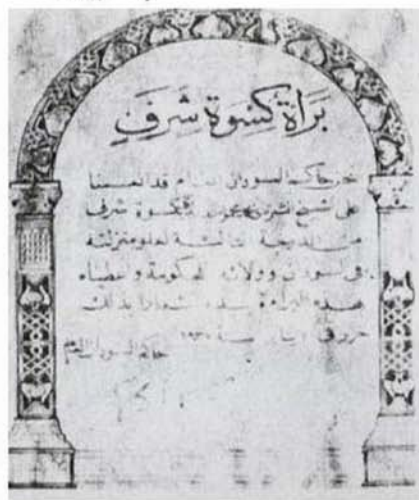 بَرَاةُ كِسْوَةِ شَرَفٍ
نحن حاكم السودان العام قد انعمنا
على الشيخ بكسوة شرف
من الدرجة الثالثة لعلو منزلته
في السودان وولائه للحكومة واعطيناه
هذه البراءة بيده اشعارا بذلك
حرر في سنة
حاكم السودان العام